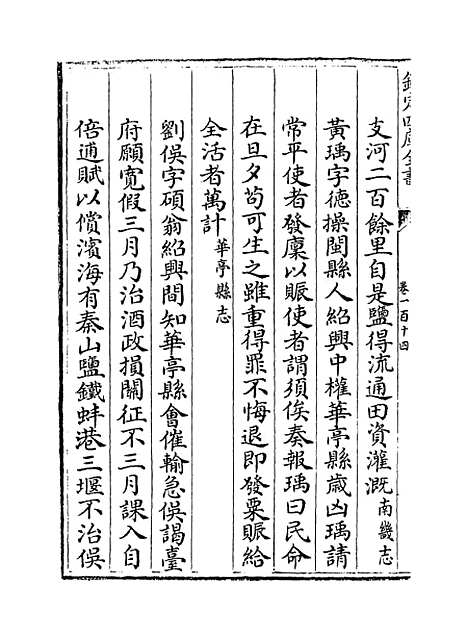 欽定四庫全書
卷一百十四
支河二百餘里自是鹽得流通田資灌溉南畿志
黃瑀字德操閩縣人紹興中權華亭縣歲凶瑀請
常平使者發廩以賑使者謂須俟奏報瑀曰民命
在旦夕苟可生之雖重得罪不悔退即發粟賑給
全活者萬計華亭縣志
劉俁字碩翁紹興間知華亭縣會催輸急俁謁臺
府願寬假三月乃治酒政損關征不三月課入自
倍逋賦以償濱海有秦山鹽鐵蚌港三堰不治俁